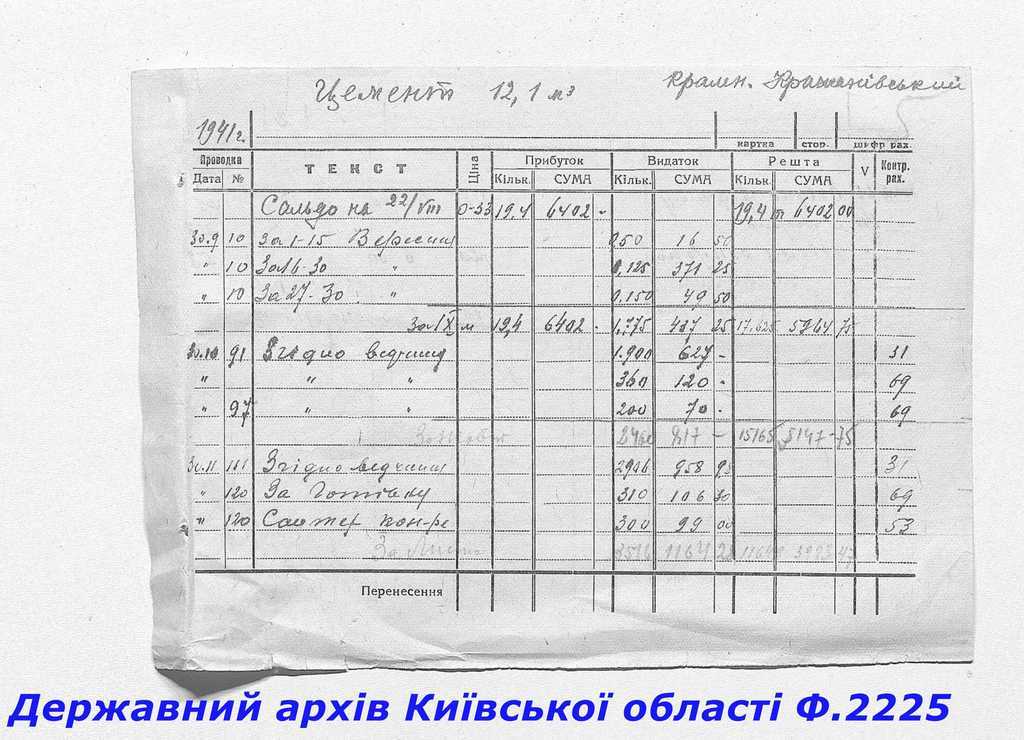 Цемент 12,1 м³ крамн.
1941г.
картка стор. шифр рах.
Проводка ТЕКСТ Ціна Прибуток Видаток Решта V Контр. рах.
Дата № Кільк. СУМА Кільк. СУМА Кільк. СУМА
Сальдо на 22/VIII 0-33 19,4 6402 - 19,4 т 6402 00
30.9 10 За 1-15 Вересня 16 50
" 10 За 16-30 " 371 25
" 10 За 27-30 " 0,150 49 50
За IX м 19,4 6402 - 1,775 25 17,625 75
30.10 91 Згідно 1.900 627 - 31
" " " 360 120 - 69
" 97 " " 200 70 - 69
817 - 15165 5147-75
30.11 111 Згідно 958 95 31
" 120 За Готівку 310 106 30 69
" 120 300 99 00 53
1164
Перенесення
Державний архів Київської області Ф.2225